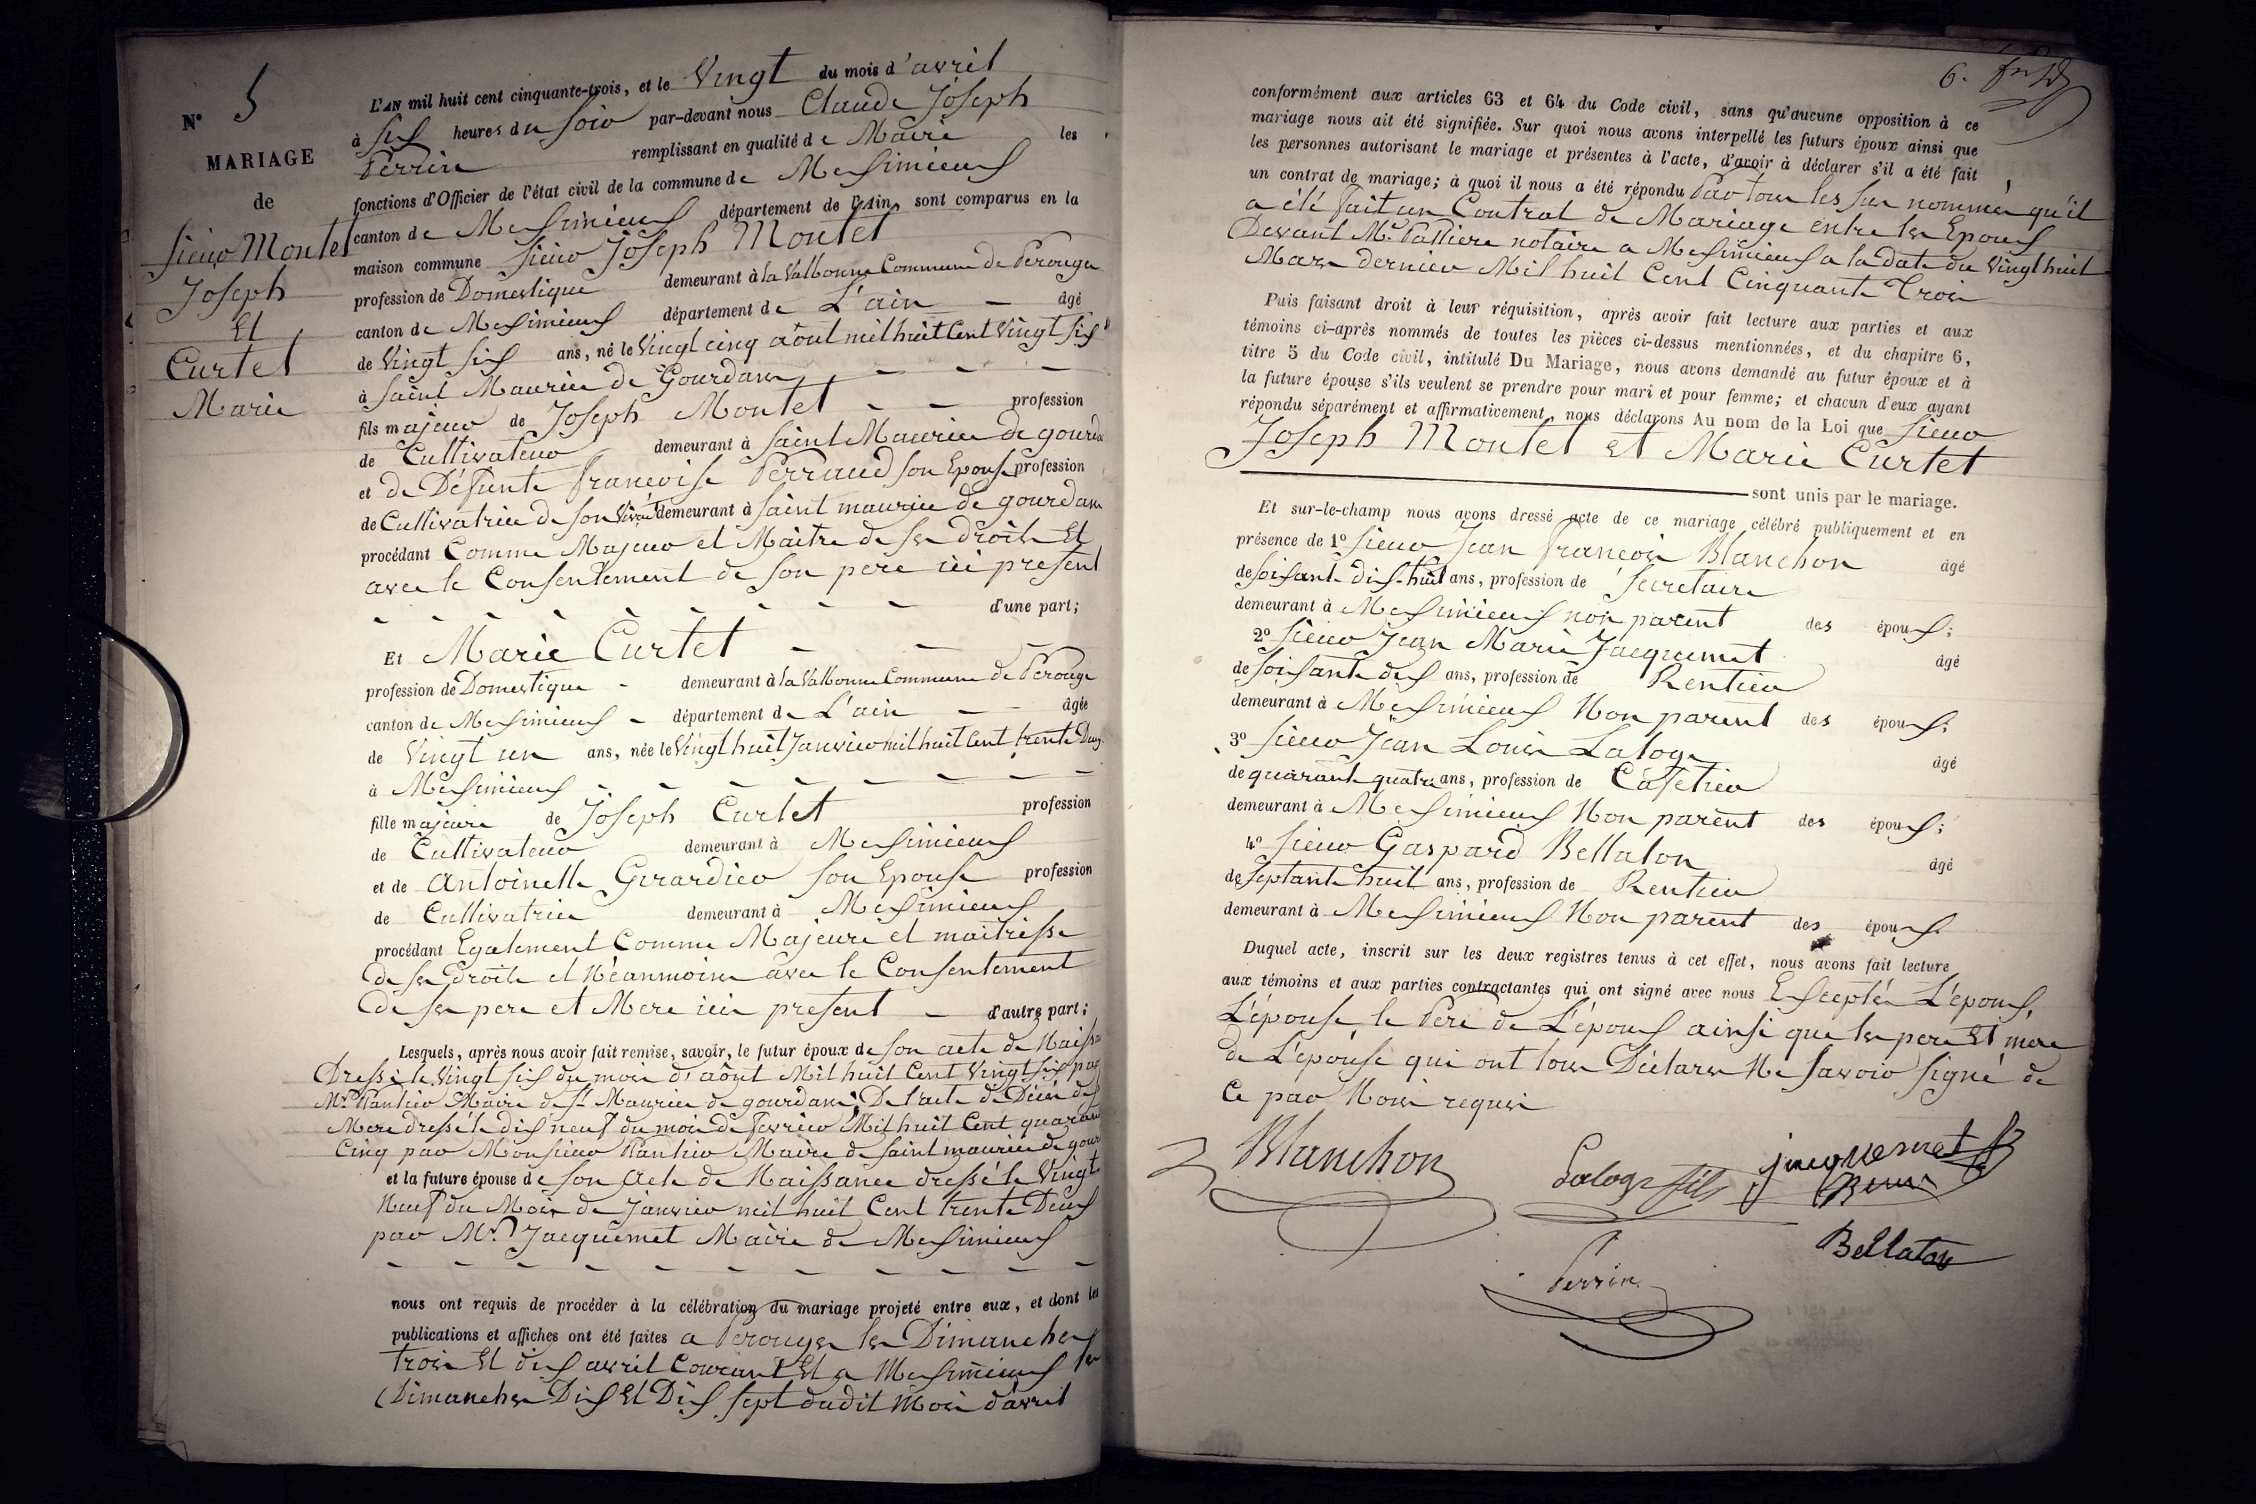 N° 5
MARIAGE
de
Sieur Montet
Joseph
Et
Curtet
Marie
L'AN mil huit cent cinquante-trois, et le Vingt du mois d'avril
à six heures du soir par-devant nous Claude Joseph
Perrin remplissant en qualité de Maire les
fonctions d'Officier de l'état civil de la commune de Meximieux
canton de Meximieux département de l'Ain, sont comparus en la
maison commune Sieur Joseph Montet
profession de Domestique demeurant à la Valbonne Commune de Perouge
canton de Meximieux département de L'ain âgé
de Vingt six ans, né le Vingt cinq août mil huit Cent Vingt six
à Saint Maurice de Gourdans
fils majeur de Joseph Montet profession
de Cultivateur demeurant à Saint Maurice de gourda
et de Défunte françoise Perraud son Epouse profession
de Cultivatrice de son vivant demeurant à Saint maurice de gourdans
procédant Comme Majeur et Maitre de ses droits Et
avec le Consentement de son pere ici present
d'une part;
Et Marie Curtet
profession de Domestique demeurant à la Valbonne Commune de Perouge
canton de Meximieux département de L'ain âgée
de Vingt un ans, née le Vingt huit Janvier mil huit Cent trente Deux
à Meximieux
fille majeure de Joseph Curtet profession
de Cultivateur demeurant à Meximieux
et de Antoinette Girardier son Epouse profession
de Cultivatrice demeurant à Meximieux
procédant Egalement Comme Majeure et maitresse
de ses droits et Néanmoins avec le Consentement
de ses pere et Mere ici present d'autre part;
Lesquels, après nous avoir fait remise, savoir, le futur époux de son acte de Naissa
Dressé le Vingt six du mois d'août Mil huit Cent Vingt six par
Mr. Maire de St Maurice de gourdans, De l'acte de Décès de sa
Mere dressé le dix neuf du mois de fevrier Mil huit Cent quarant
Cinq par Monsieur Maire de Saint maurice de gour
et la future épouse de son acte de Naissance dressé le Vingt
Neuf du Mois de Janvier mil huit Cent trente Deux
par Mr. Jacquemet Maire de Meximieux
nous ont requis de procéder à la célébration du mariage projeté entre eux, et dont les
publications et affiches ont été faites a Perouges les Dimanches
trois Et dix avril Courant Et a Meximieux les
Dimanches Dix Et Dix sept dudit Mois d'avril
6.
conformément aux articles 63 et 64 du Code civil, sans qu'aucune opposition à ce
mariage nous ait été signifiée. Sur quoi nous avons interpellé les futurs époux ainsi que
les personnes autorisant le mariage et présentes à l'acte, d'avoir à déclarer s'il a été fait
un contrat de mariage; à quoi il nous a été répondu Par tous les sus nommés qu'il
a été fait un Contrat de Mariage entre les Epoux
Devant Me. Pattiere notaire a Meximieux a la date du Vingt huit
Mars dernier Mil huit Cent Cinquante Trois
Puis faisant droit à leur réquisition, après avoir fait lecture aux parties et aux
témoins ci-après nommés de toutes les pièces ci-dessus mentionnées, et du chapitre 6,
titre 5 du Code civil, intitulé Du Mariage, nous avons demandé au futur époux et à
la future épouse s'ils veulent se prendre pour mari et pour femme; et chacun d'eux ayant
répondu séparément et affirmativement, nous déclarons Au nom de la Loi que Sieur
Joseph Montet et Marie Curtet
sont unis par le mariage.
Et sur-le-champ nous avons dressé acte de ce mariage célébré publiquement et en
présence de 1° Sieur Jean françois Blanchon âgé
de soixante dix-huit ans, profession de Secretaire
demeurant à Meximieux non parent des époux;
2° Sieur Jean Marie Jacquemet âgé
de soixante dix ans, profession de Rentier
demeurant à Meximieux Non parent des époux;
3° Sieur Jean Louis Laloge âgé
de quarante quatre ans, profession de Cafetier
demeurant à Meximieux Non parent des époux;
4° Sieur Gaspard Bellaton âgé
de Septante huit ans, profession de Rentier
demeurant à Meximieux Non parent des époux.
Duquel acte, inscrit sur les deux registres tenus à cet effet, nous avons fait lecture
aux témoins et aux parties contractantes qui ont signé avec nous Excepté L'époux,
L'épouse, le Pere de L'époux ainsi que les pere Et mere
de L'épouse qui ont tous Déclarés Ne Savoir signé de
Ce par Nous requis
Blanchon
Laloge fils
jacquemet
Bellaton
Perrin